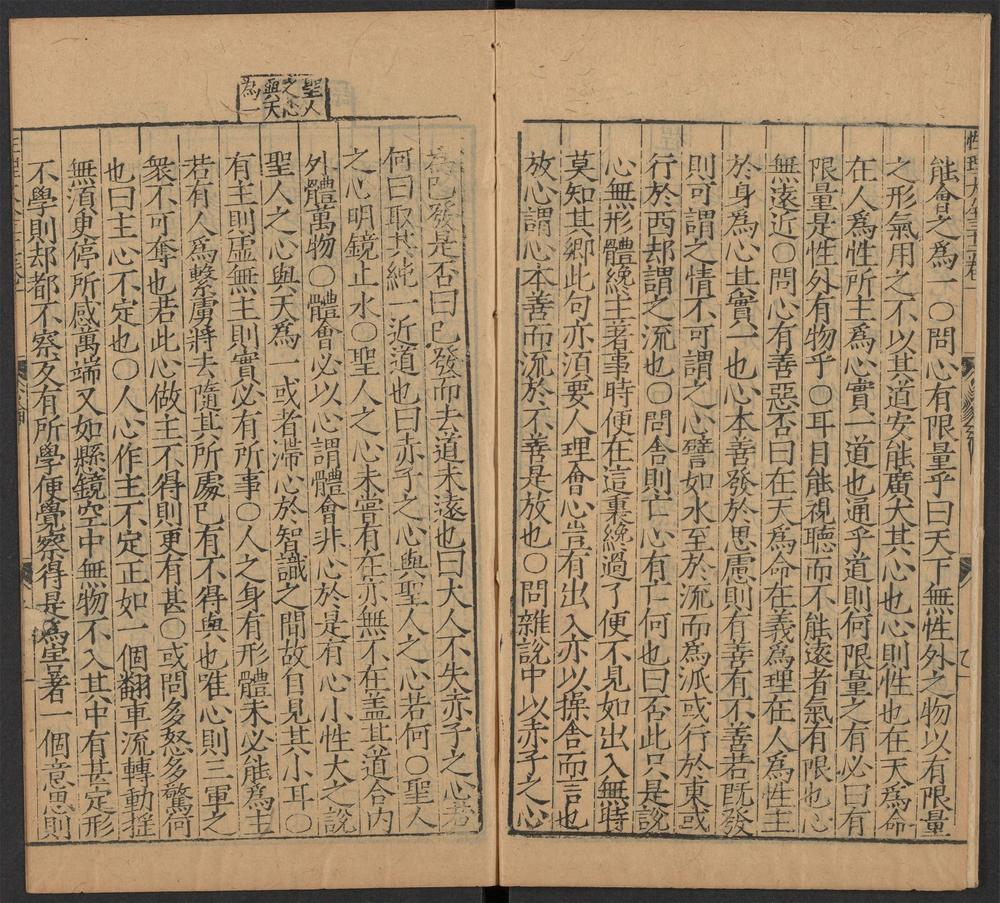 能會之爲一〇問心有限量乎曰天下無性外之物以有限量
之形氣用之不以其道安能廣大其心也心則性也在天爲命
在人爲性所主爲心實一道也通乎道則何限量之有必曰有
限量是性外有物乎〇耳目能視聽而不能遠者氣有限也心
無遠近〇問心有善惡否曰在天爲命在義爲理在人爲性主
於身爲心其實一也心本善發於思慮則有善有不善若既發
則可謂之情不可謂之心譬如水至於流而爲派或行於東或
行於西却謂之流也〇問舍則亡心有亡何也曰否此只是說
心無形體纔主著事時便在這裏纔過了便不見如出入無時
莫知其鄉此句亦須要人理會心豈有出入亦以操舍而言也
放心謂心本善而流於不善是放也〇問雜說中以赤子之心
聖人
之心
與天
爲一
為已發是否曰已發而去道未遠也曰大人不失赤子之心若
何曰取其純一近道也曰赤子之心與聖人之心若何〇聖人
之心明鏡止水〇聖人之心未嘗有在亦無不在蓋其道合内
外體萬物〇體會必以心謂體會非心於是有心小性大之說
聖人之心與天爲一或者滯心於智識之間故自見其小耳〇
有主則虛無主則實必有所事〇人之身有形體未必能爲主
若有人爲繫虜將去隨其所處已有不得與也唯心則三軍之
衆不可奪也若此心做主不得則更有甚〇或問多怒多驚何
也曰主心不定也〇人心作主不定正如一個翻車流轉動搖
無須臾停所感萬端又如懸鏡空中無物不入其中有甚定形
不學則却都不察及有所學便覺察得是爲害著一個意思則